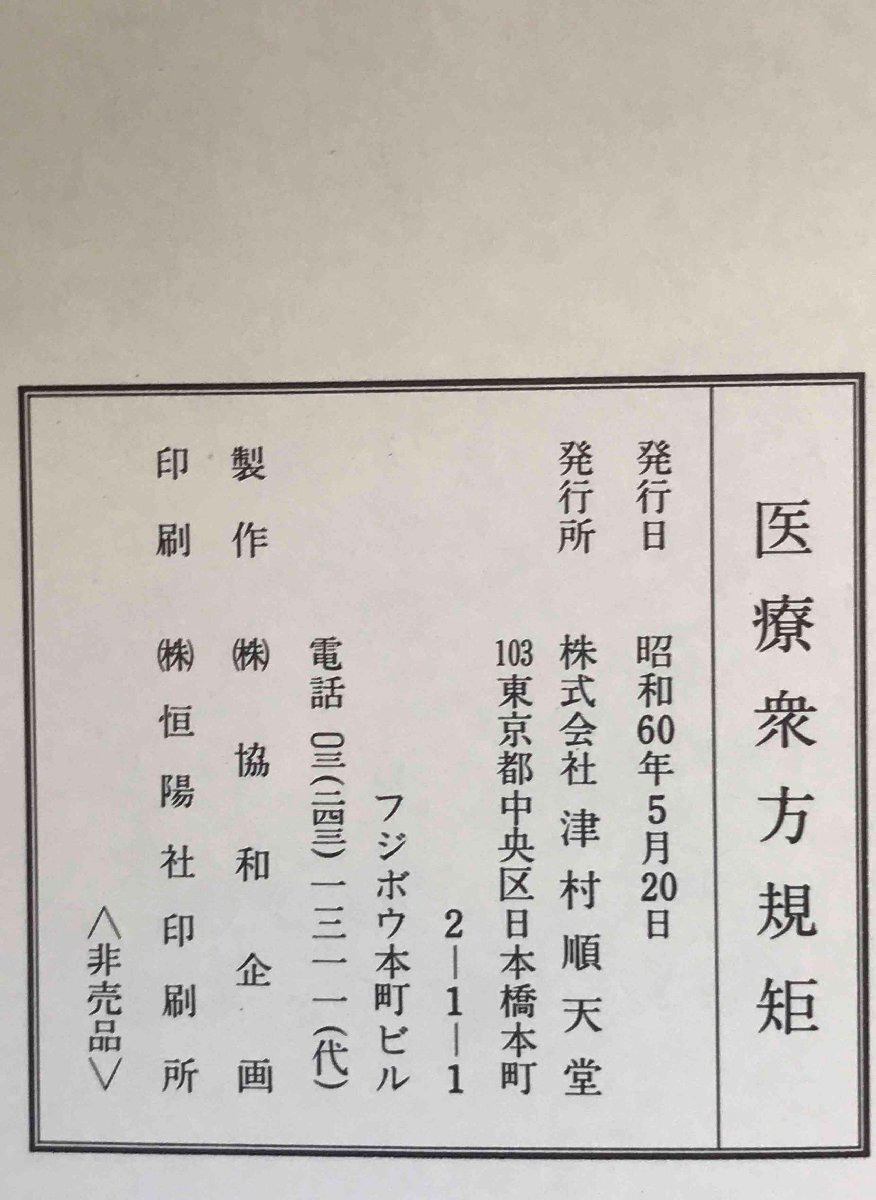 医療衆方規矩
発行日 昭和60年5月20日
発行所 株式会社津村順天堂
103東京都中央区日本橋本町
2―1―1
フジボウ本町ビル
電話 〇三(二四三)一三一一(代)
製作 ㈱協和企画
印刷 ㈱恒陽社印刷所
〈非売品〉